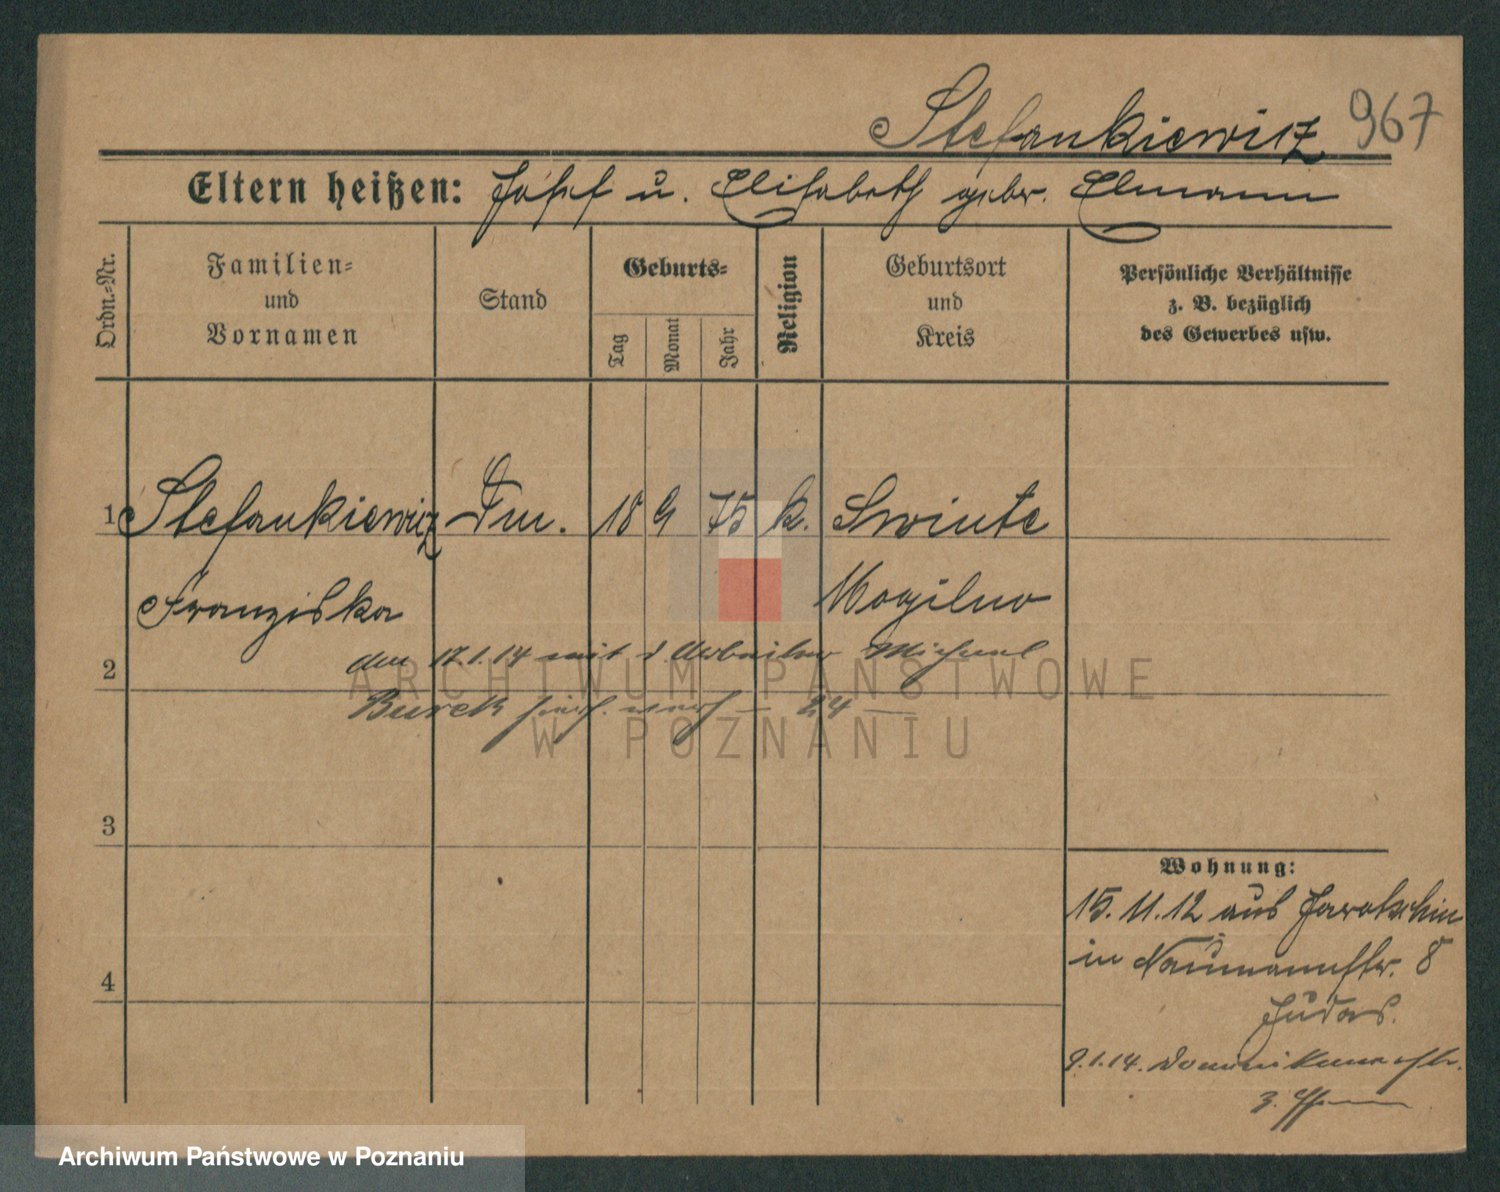 Stefankiewicz 967
Eltern heißen: Josef u. Elisabeth gebr. Elmann
Ordn.=Nr.
Familien=
und
Vornamen
Stand
Geburts=
Tag
Monat
Jahr
Religion
Geburtsort
und
Kreis
Persönliche Verhältnisse
z. B. bezüglich
des Gewerbes usw.
1 Stefankiewicz 18 9 75 k. Swinte
Franziska Mogilno
den 17.1.14 mit d. Arbeiter Michael
2
Burek
24
ARCHIWUM PAŃSTWOWE
W POZNANIU
3
4
Wohnung:
15.11.12 aus Jarotschin
in Naumannstr. 8
Judas.
9.1.14. Dominikanerstr.
3.
Archiwum Państwowe w Poznaniu